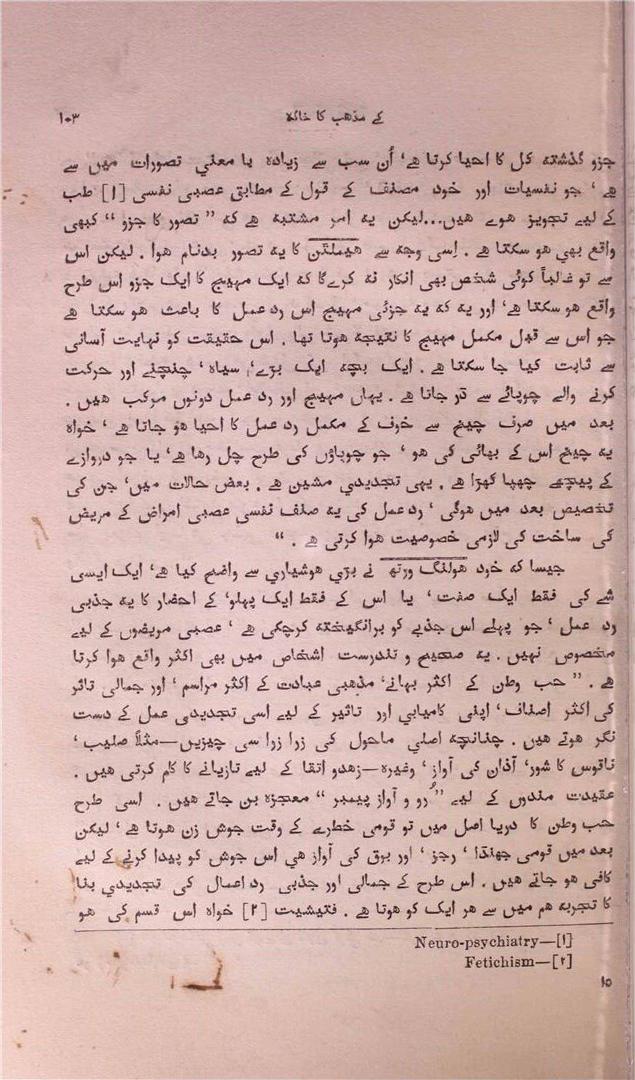 کے مذهب کا خاکه ۱۰۳
جزو گذشته کل کا احیا کرتا هے‘ اُن سب سے زیاده با معني تصورات میں سے
هے ‘ جو نفسیات اور خود مصنف کے قول کے مطابق عصبی نفسی [۱] طب
کے لیے تجویز هوے هیں...لیکن یه امر مشتبه هے که ”تصور کا جزو“ کبهی
واقع بهی هو سکتا هے . اِسی وجه سے هیملٹن کا یه تصور بدنام هوا . لیکن اس
سے تو غالباً کوئی شخص بهی انکار نه کرے گا که ایک مهیج کا ایک جزو اس طرح
واقع هو سکتا هے‘ اور یه که یه جزئی مهیج اس رد عمل کا باعث هو سکتا هے
جو اس سے قبل مکمل مهیج کا نتیجه هوتا تها . اس حقیقت کو نهایت آسانی
سے ثابت کیا جا سکتا هے . ایک بچه ایک بڑے‘ سیاه ‘ چنچنے اور حرکت
کرنے والے چوپائے سے ڈر جاتا هے . یهاں مهیج اور رد عمل دونوں مرکب هیں .
بعد میں صرف چیخ سے خوف کے مکمل رد عمل کا احیا هو جاتا هے ‘ خواه
یه چیخ اس کے بهائی کی هو ‘ جو چوپاؤں کی طرح چل رها هے‘ یا جو دروازے
کے پیچهے چهپا کهڑا هے . یهی تجدیدي مشین هے . بعض حالات میں‘ جن کی
تخصیص بعد میں هوگی ‘ رد عمل کی یه صنف نفسی عصبی امراض کے مریض
کی ساخت کی لازمی خصوصیت هوا کرتی هے . “
جیسا که خود هولنگ ورتهه نے بڑی هوشیاري سے واضح کیا هے‘ ایک ایسی
شے کی فقط ایک صفت ‘ یا اس کے فقط ایک پهلو‘ کے احضار کا یه جذبی
رد عمل ‘ جو پهلے اس جذبے کو برانگیخته کرچکی هے ‘ عصبی مریضوں کے لیے
مخصوص نهیں . یه صحیح و تندرست اشخاص میں بهی اکثر واقع هوا کرتا
هے . ”حب وطن کے اکثر بهانے‘ مذهبی عبادت کے اکثر مراسم ‘ اور جمالی تاثر
کی اکثر اصناف ‘ اپنی کامیابی اور تاثیر کے لیے اسی تجدیدی عمل کے دست
نگر هوتے هیں . چنانچه اصلی ماحول کی زرا زرا سی چیزیں—مثلاً صلیب ‘
ناقوس کا شور‘ آذان کی آواز ‘ وغیره—زهدو اتقا کے لیے تازیانے کا کام کرتی هیں .
عقیدت مندوں کے لیے ”رُو و آواز پیمبر“ معجزه بن جاتے هیں . اسی طرح
حب وطن کا دریا اصل میں تو قومی خطرے کے وقت جوش زن هوتا هے ‘ لیکن
بعد میں قومی جهنڈا ‘ رجز ‘ اور برق کی آواز هی اس جوش کو پیدا کرنے کے لیے
کافی هو جاتے هیں . اس طرح کے جمالی اور جذبی رد اعمال کی تجدیدي بنا
کا تجربه هم میں سے هر ایک کو هوتا هے . فتیشیت [۲] خواه اس قسم کی هو
Neuro-psychiatry—[۱]
Fetichism—[۲]
۱۵